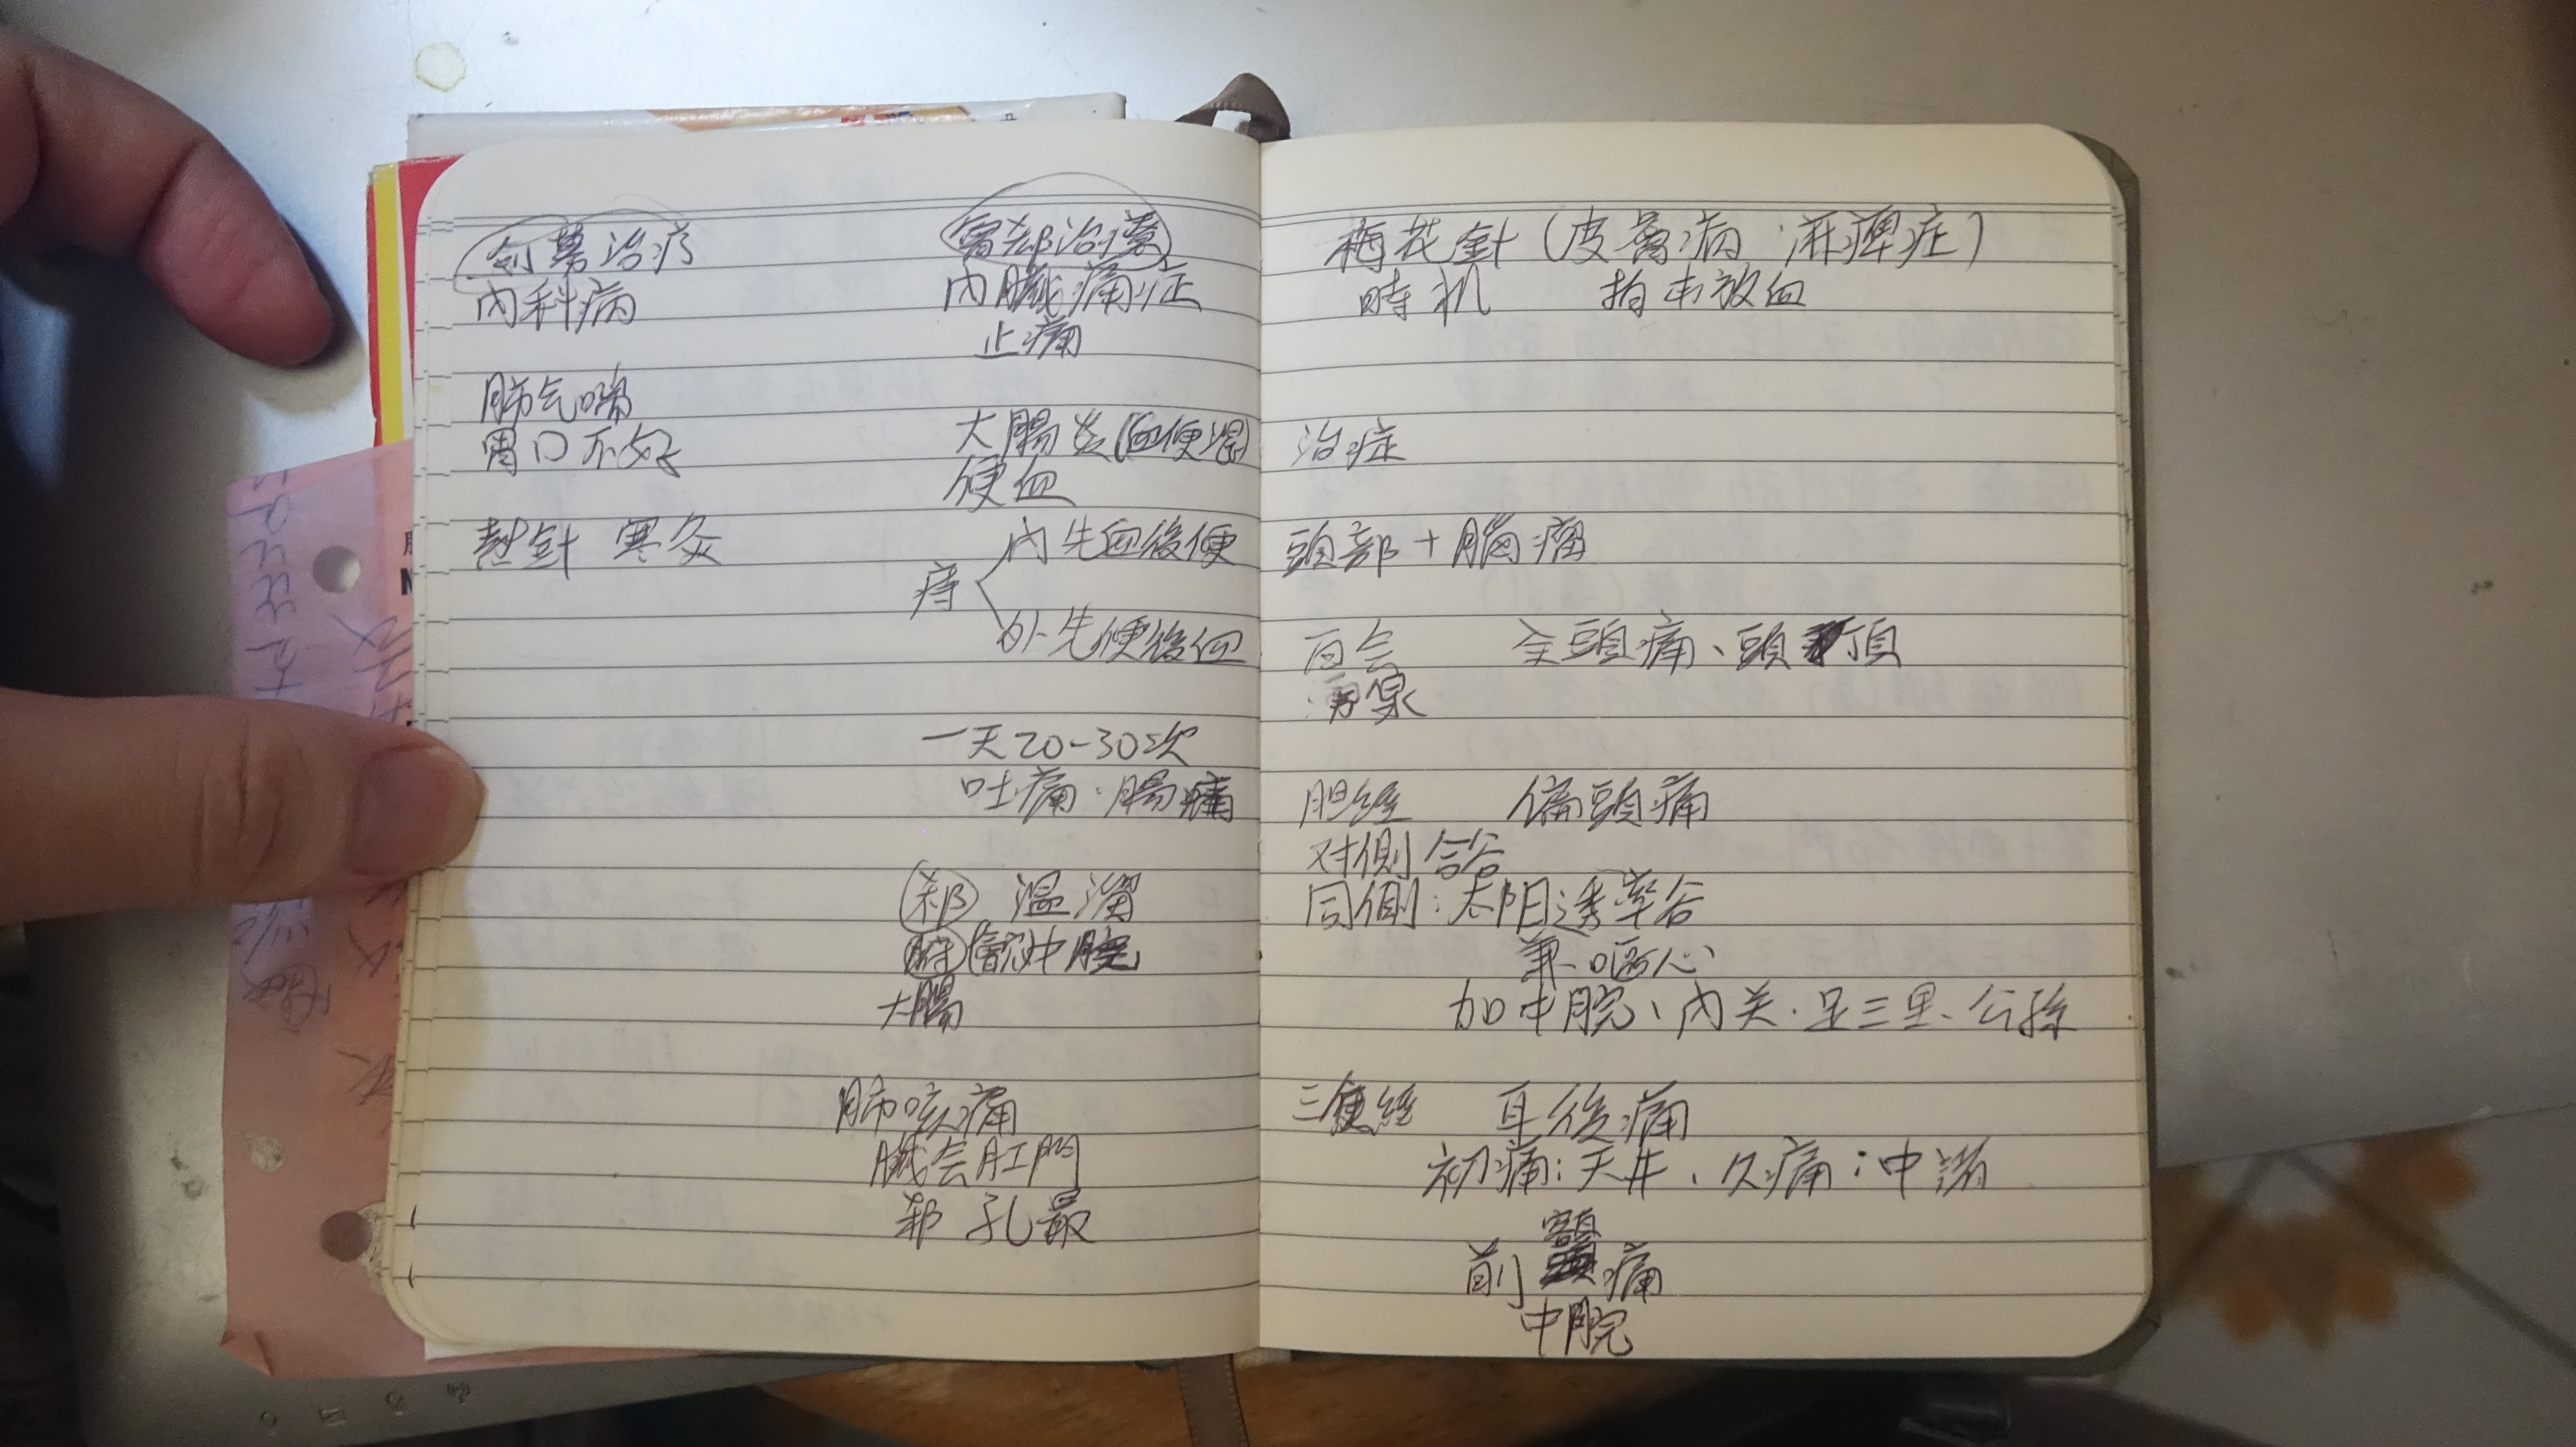 治疗
內科病
肺气喘
胃口不好
熱針 寒灸
會郄治療
內臟痛症
止痛
大腸炎(血便混)
便血
痔
內先血後便
外先便後血
一天20-30次
吐痛·腸痛
郄 溫溜
腑會穴中脘
大腸
肺咳痛
臟会肛門
郄 孔最
梅花針(皮膚病·麻痺症)
時机 拍击放血
治症
頭部+腦痛
百会 全頭痛、頭頂
涌泉
胆经 偏頭痛
对側合谷
同側:太阳透率谷
兼嘔心
加中脘、內关·足三里、公孫
三焦經 耳後痛
初痛:天井、久痛:中渚
前額痛
中脘